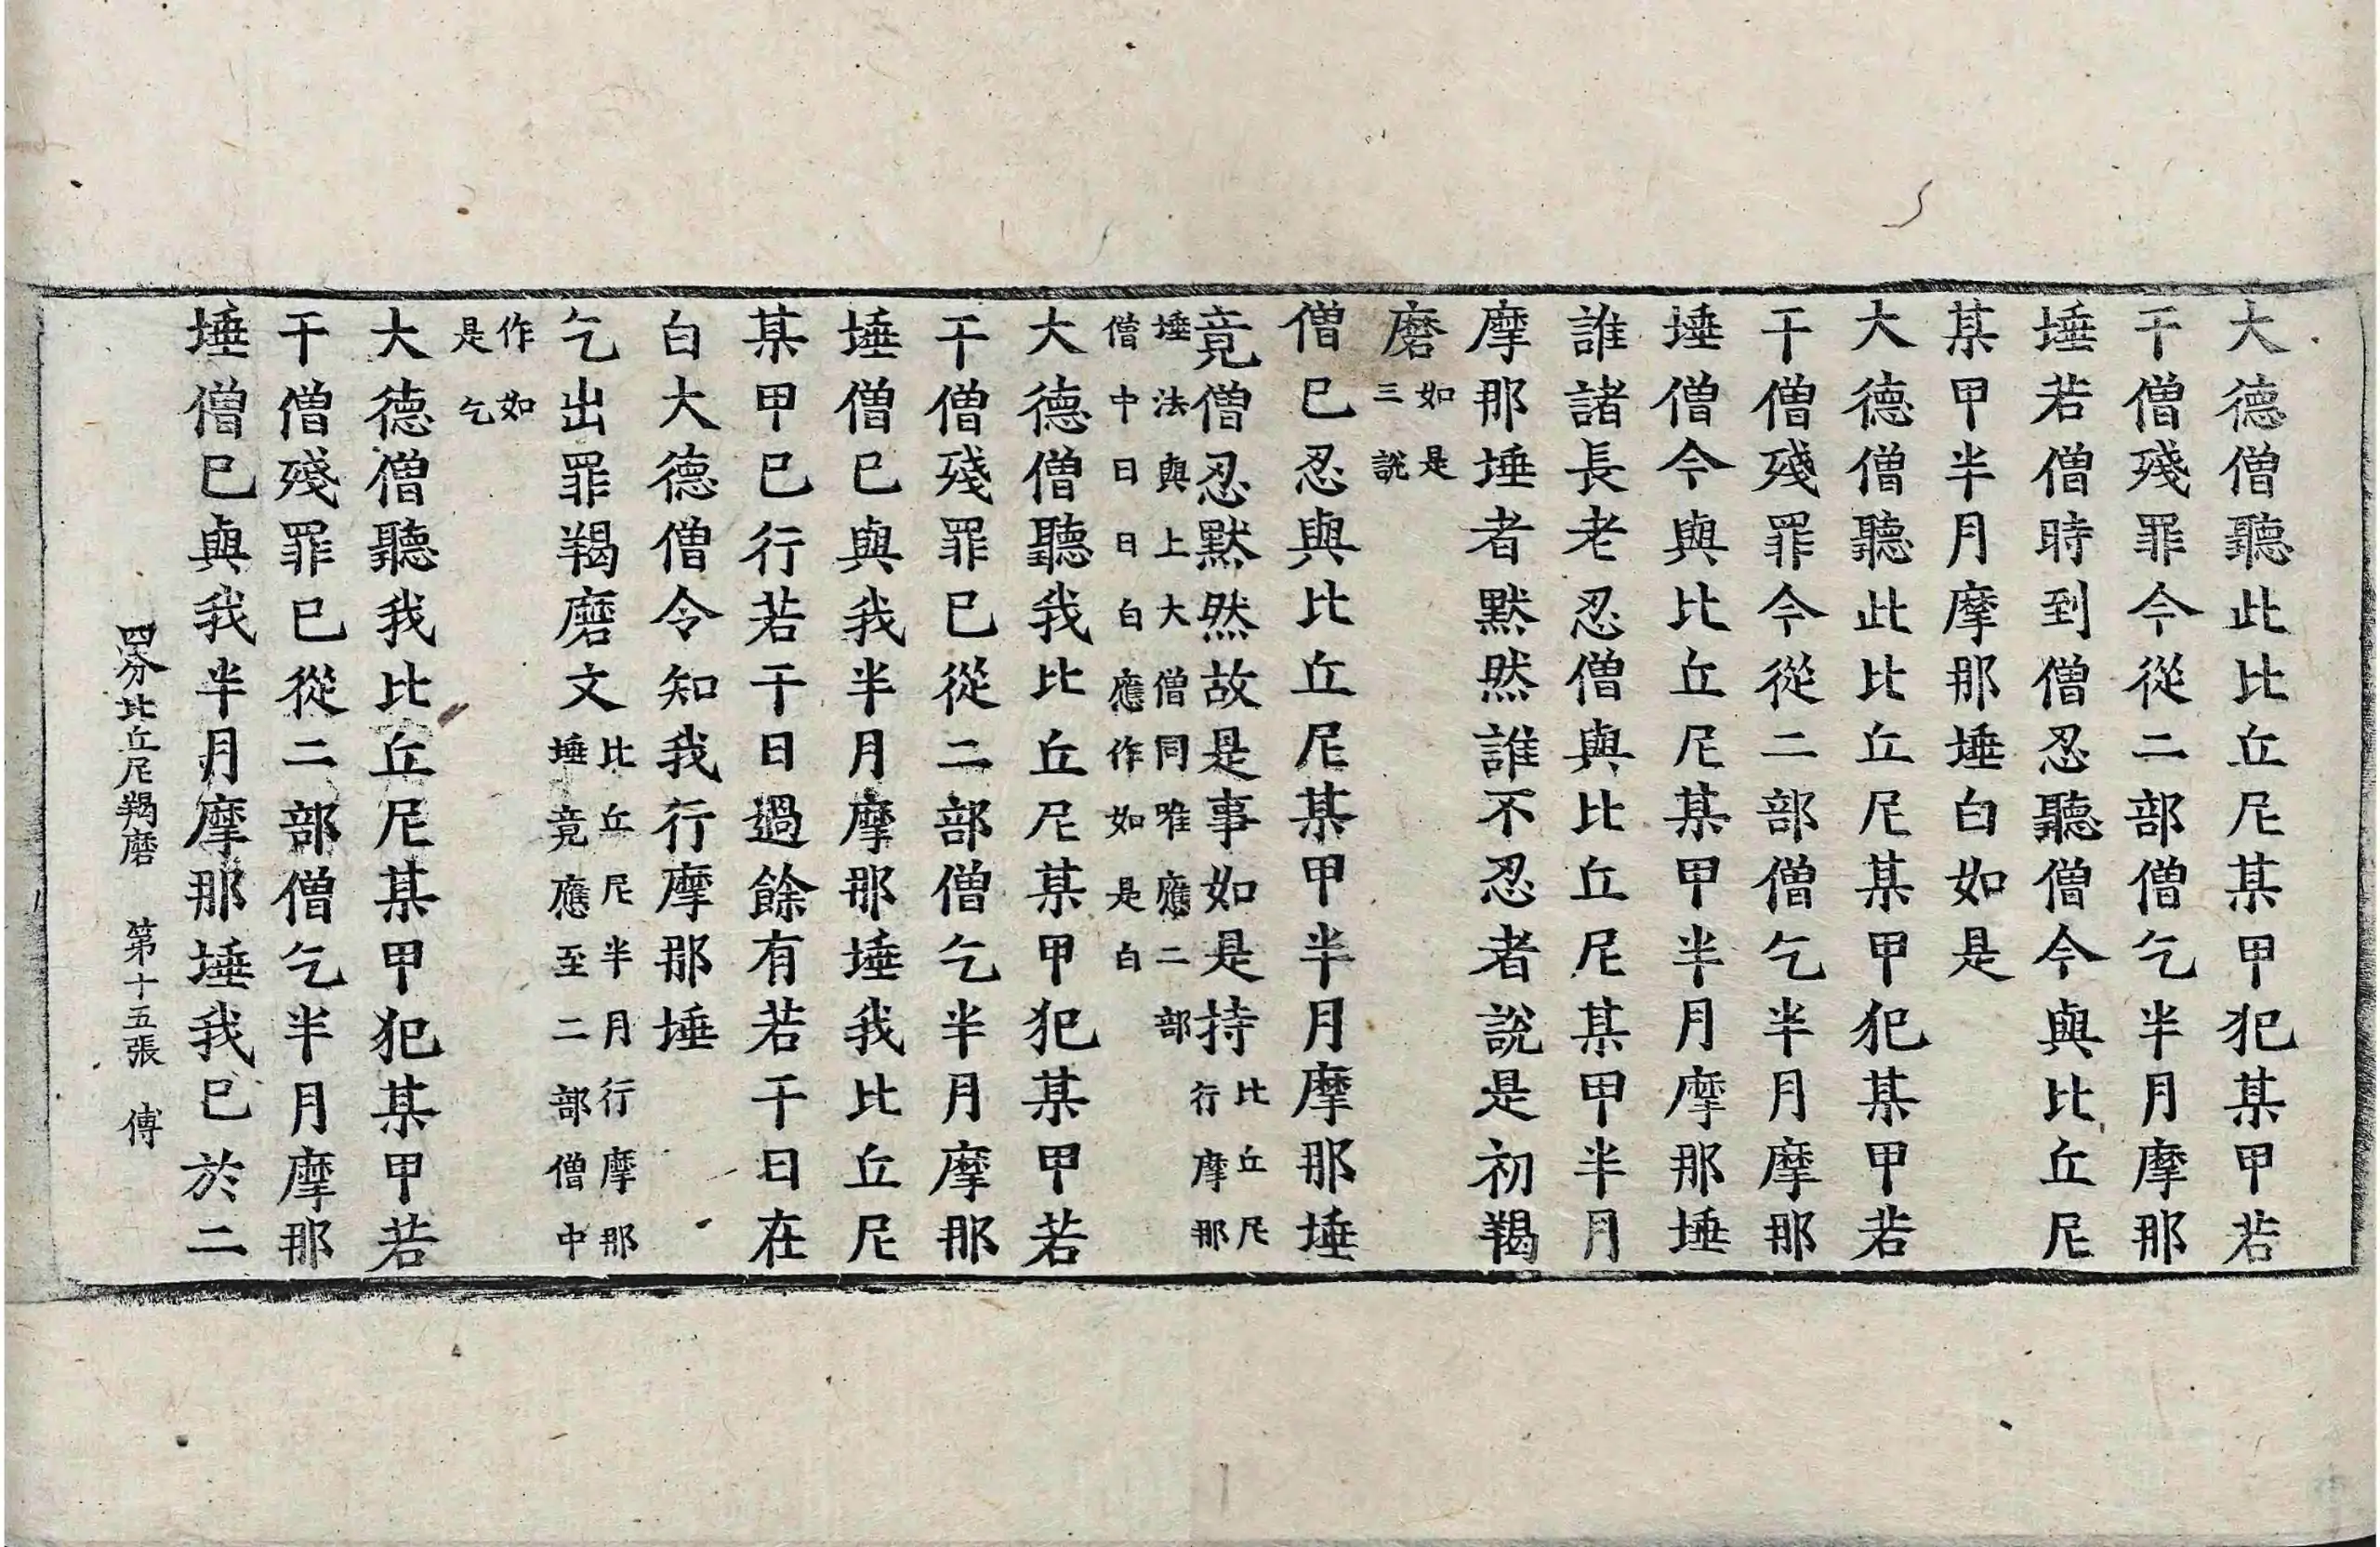 大德僧聽此比丘尼某甲犯某甲若
干僧殘罪今從二部僧乞半月摩那
埵若僧時到僧忍聽僧今與比丘尼
某甲半月摩那埵白如是
大德僧聽此比丘尼某甲犯某甲若
干僧殘罪今從二部僧乞半月摩那
埵僧今與比丘尼某甲半月摩那埵
誰諸長老忍僧與比丘尼某甲半月
摩那埵者默然誰不忍者說是初羯
磨如是三說
僧已忍與比丘尼某甲半月摩那埵
竟僧忍默然故是事如是持比丘尼行摩那
埵法與上大僧同唯應二部
僧中日日白應作如是白
大德僧聽我比丘尼某甲犯某甲若
干僧殘罪已從二部僧乞半月摩那
埵僧已與我半月摩那埵我比丘尼
某甲已行若干日過餘有若干日在
白大德僧令知我行摩那埵
乞出罪羯磨文比丘尼半月行摩那埵竟應至二部僧中
作如是乞
大德僧聽我比丘尼某甲犯某甲若
干僧殘罪已從二部僧乞半月摩那
埵僧已與我半月摩那埵我已於二
四分比丘尼羯磨 第十五張 傅